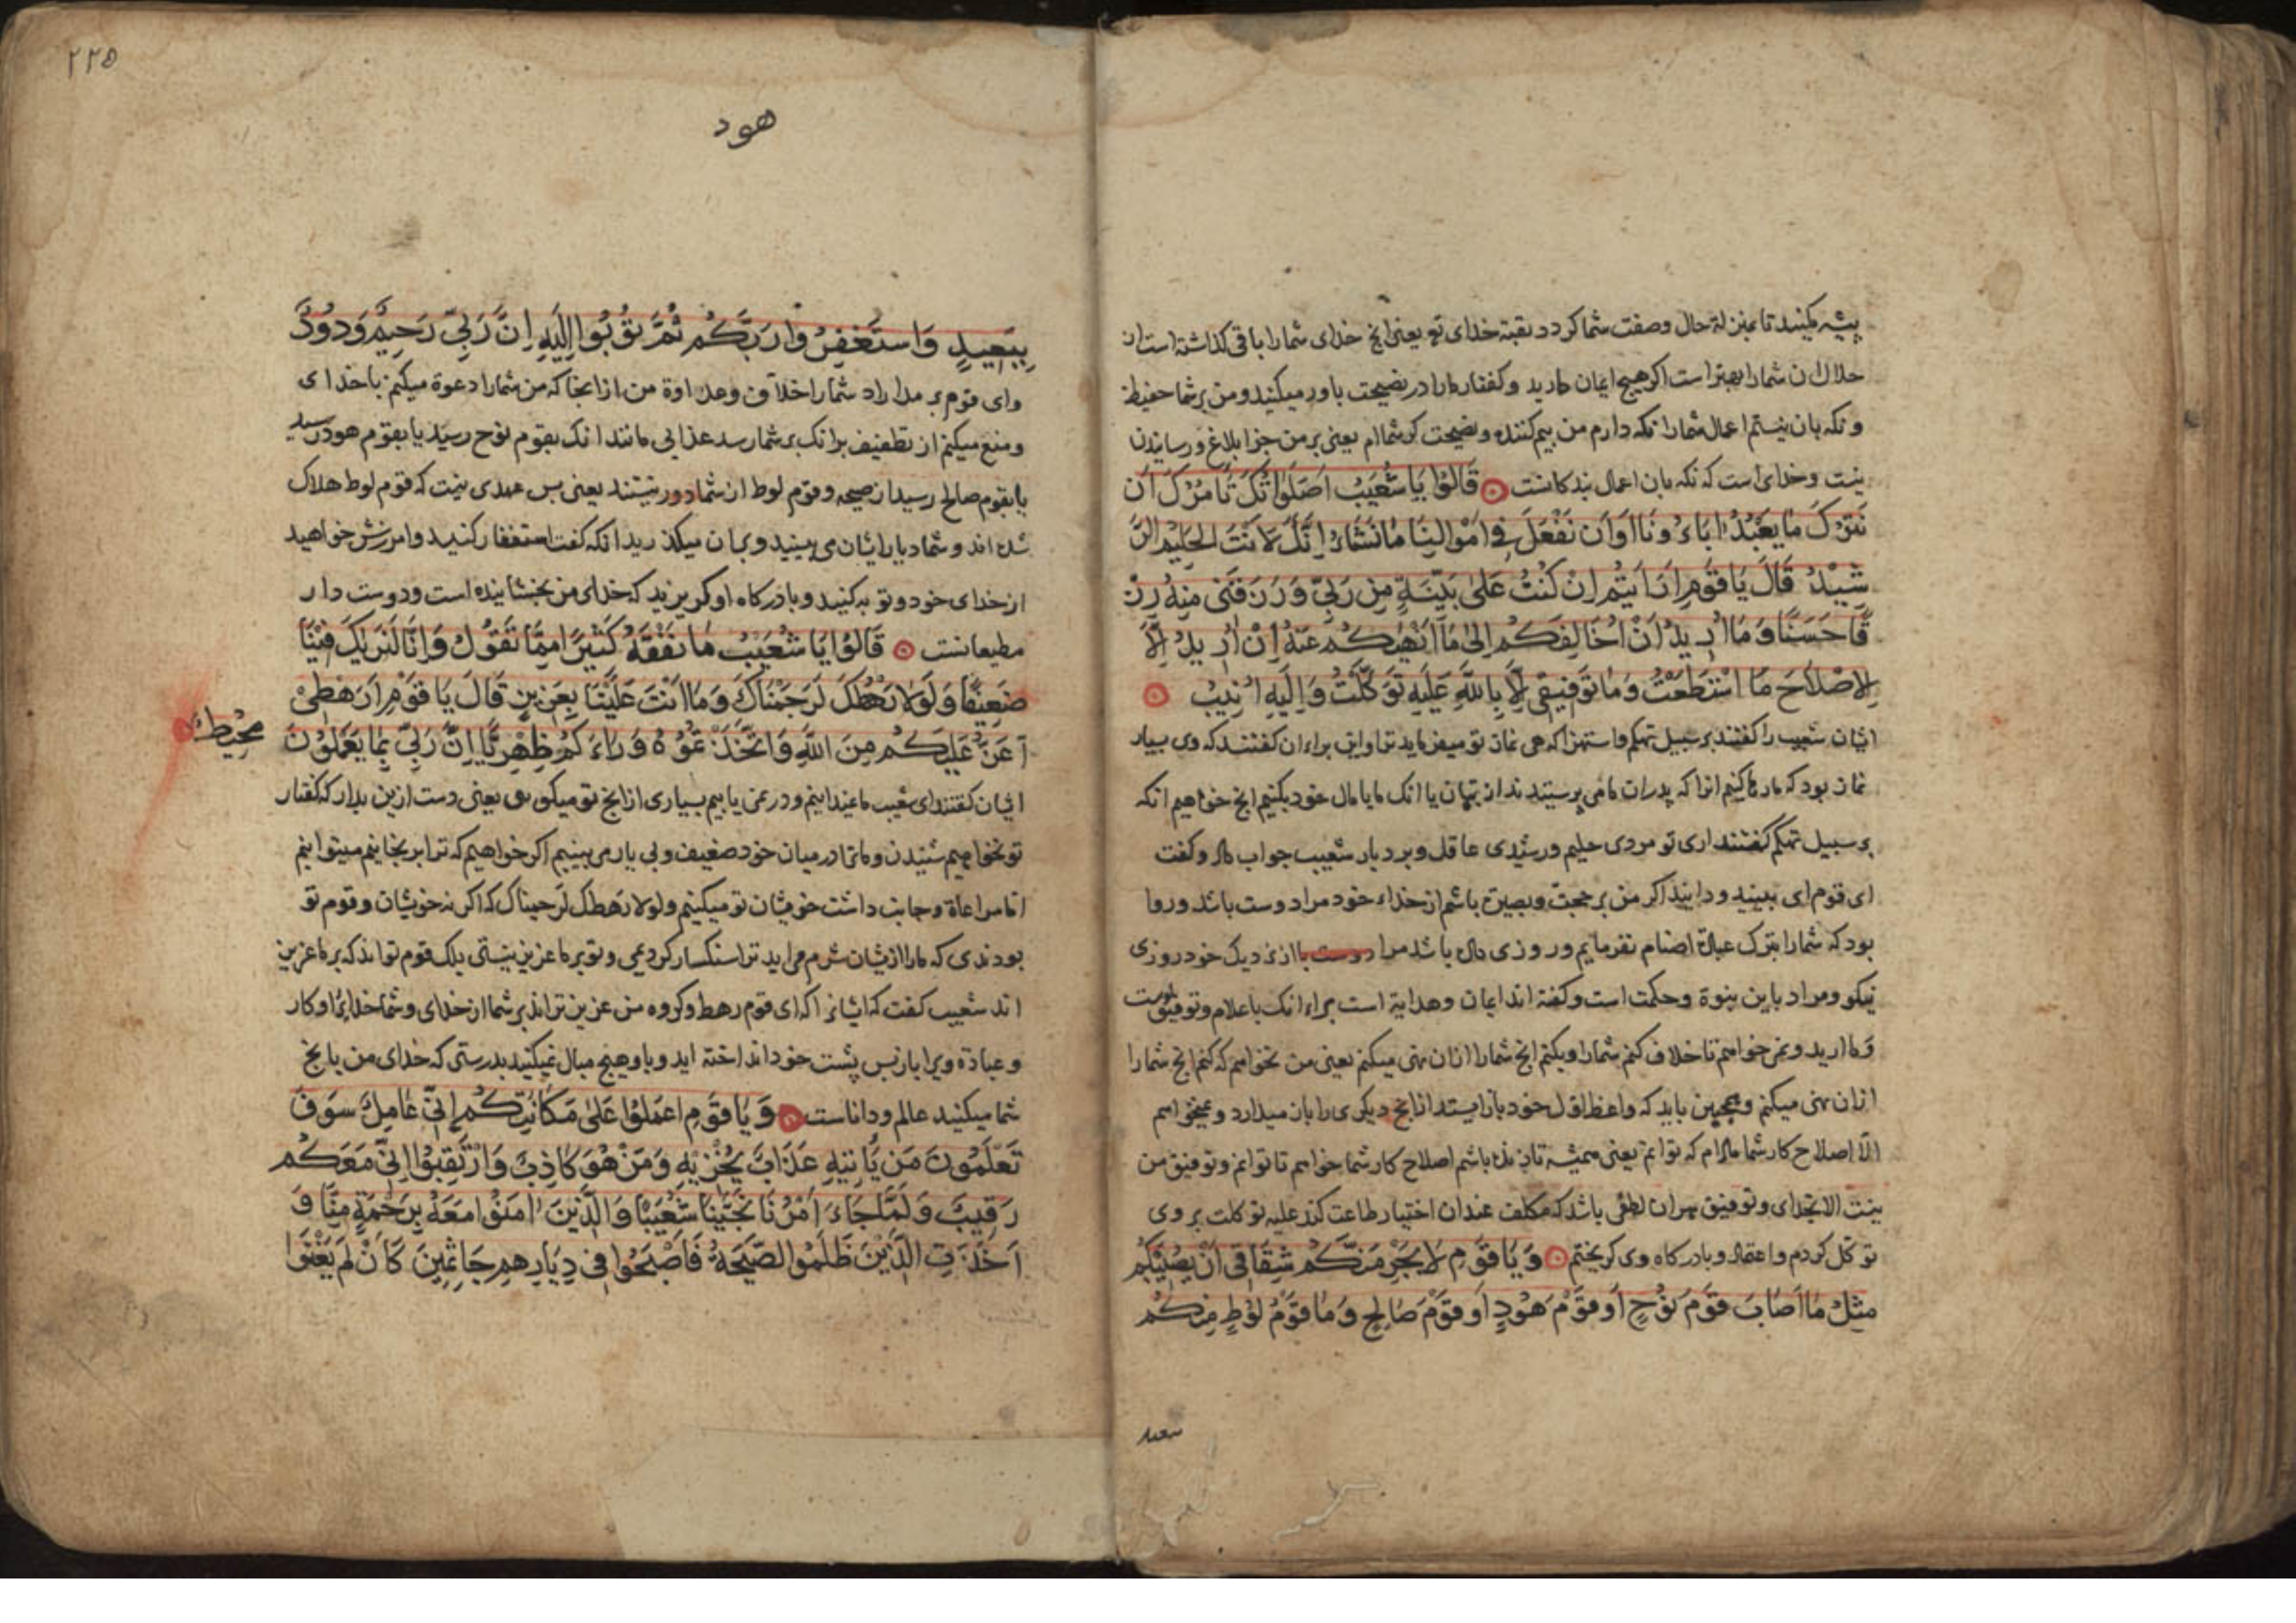 پیشه میکنید تا بمنزلة حال وصفت شما کردد بقیة خدای تع یعنی انج خدای شمارا باقی کذاشته است از
حلال ان شمارا بهتر است اکر هیچ ایمان دارید و کفتار مارا در نصیحت باور میکنید و من بر شما حفیظ
و نکه بان نیستم اعمال شمارا نکه دارم من بیم کننده و نصیحت کر شماام یعنی بر من جز ابلاغ و رسانیدن
نیست و خدای است که نکه بان اعمال بندکانست قَالُوا يَا شُعَيْبُ اَصَلَوَاتُكَ تَأمُرُكَ اَن
نَتْرُكَ مَا يَعْبُدُ اٰبَاءُ ونَا اَوْ اَنْ نَفْعَلَ فِى اَمْوَالِنَا مَا نَشَاءُ اِنَّكَ لَاَنْتَ الْحَلِيْمُ الرَّ
شِيْدُ قَالَ يَا قَوْمِ اَرَاَيْتُمْ اِنْ كُنْتُ عَلىٰ بَيِّنَةٍ مِنْ رَبِّى وَرَزَقَنِى مِنْهُ رِزْ
قًا حَسَنًا وَمَا اُرِيدُ اَنْ اُخَالِفَكُمْ اِلىٰ مَا اَنْهٰيكُمْ عَنْهُ اِنْ اُرِيدُ اِلَّا
الِاصْلَاحَ مَا اسْتَطَعْتُ وَمَا تَوْفِيقِى اِلَّا بِاللّٰهِ عَلَيْهِ تَوَكَّلْتُ وَاِلَيْهِ اُنِيبُ
ایشان شعیب را کفتند بر سبیل تهکم و استهزا که هی نماز تو میفرماید ترا و این براء ان کفتند که وی بسیار
نماز بود که ما رها کنیم انرا که پدران ما می پرستیدند از بتهان یا انک ما با مال خود بکنیم انج خواهیم انکه
بر سبیل تهکم کفتند اری تو مردی حلیم و رشیدی عاقل و بردبار شعیب جواب داد و کفت
ای قوم ای ببینید و دانید اکر من بر حجت و بصیرة باشم از خداء خود مراد دوست باشد و روا
بود که شمارا بترک عبادة اصنام نفرمایم و روزی داده باشد مرا از نزدیک خود روزی
نیکو و مراد باین نبوة و حکمت است و کفته اند ایمان و هدایة است براء انک باعلام و توفیق اوست
وما ارید و نمی خواهم تا خلاف کنم شمارا و بکنم انج شمارا ازان نهی میکنم یعنی من نخواهم که کنم انج شمارا
ازان نهی میکنم و همچنین باید که واعظ اول خود باز ایستد از انج دیکری را باز میدارد و نمیخواهم
الّا اصلاح کار شما مادام که توانم یعنی همیشه تا زنده باشم اصلاح کار شما خواهم تا توانم و توفیق من
نیست الا بخدای و توفیق هر ان لطفی باشد که مکلف عندان اختیار طاعت کند علیه توکلت بر وی
توکل کردم و اعتماد و بادرکاه وی کریختم وَيَا قَوْمِ لَا يَجْرِمَنَّكُمْ شِقَاقِى اَنْ يُصِيْبَكُمْ
مِثْلُ مَا اَصَابَ قَوْمَ نُوْحٍ اَوْ قَوْمَ هُوْدٍ اَوْ قَوْمَ صَالِحٍ وَمَا قَوْمُ لُوْطٍ مِنْكُمْ
ببعید
۲۲۵
هود
بِبَعِيدٍ وَاسْتَغْفِرُوا رَبَّكُمْ ثُمَّ تُوْبُوا اِلَيْهِ اِنَّ رَبِّى رَحِيْمٌ وَدُوْدٌ
وای قوم بر مدارد شمارا خلاف و عداوة من ازانجا که من شمارا دعوة میکنم باخدای
و منع میکنم از تطفیف برانک بر شما رسد عذابی مانند انک بقوم نوح رسید یا بقوم هود رسید
یا بقوم صالح رسید از صیحه و قوم لوط از شما دور نیستند یعنی بس عهدی نیست که قوم لوط هلاک
شده اند و شما دیارایشان می بینید و بران میکذرید انکه کفت استغفار کنید و امرزش خواهید
از خدای خود و توبه کنید و بادرکاه او کریزید که خدای من بخشاینده است و دوست دار
مطیعانست قَالُوْا يَا شُعَيْبُ مَا نَفْقَهُ كَثِيْرًا مِمَّا تَقُوْلُ وَاِنَّا لَنَرٰيكَ فِيْنَا
ضَعِيْفًا وَلَوْلَا رَهْطُكَ لَرَجَمْنَاكَ وَمَا اَنْتَ عَلَيْنَا بِعَزِيزٍ قَالَ يَا قَوْمِ اَرَهْطِىْ
اَعَزُّ عَلَيْكُمْ مِنَ اللّٰهِ وَاتَّخَذْتُمُوْهُ وَرَاءَكُمْ ظِهْرِيًّا اِنَّ رَبِّى بِمَا يَعْمَلُوْنَ
مُحِيْطٌ
ایشان کفتند ای شعیب ما نمیدانیم و در نمی یابیم بسیاری از انج تو میکوی یعنی دست ازین بدار که کفتار
تو نخواهیم شنیدن و ما ترا در میان خود ضعیف و بی یار می بینیم اکر خواهیم که ترا برنجانیم میتوانیم
اما مراعاة و جانب داشت خویشان تو میکنیم ولولا رهطک لرجمناک که اکر نه خویشان و قوم تو
بودندی که مارا ازیشان شرم می اید ترا سنکسار کردیمی و تو بر ما عزیز نیستی بلک قوم تواند که بر ما عزیز
اند شعیب کفت که ایشانرا که ای قوم رهط و کروه من عزیزتراند بر شما از خدای و شما خدایرا و کار
و عبادة ویرا باز بس پشت خود انداخته اید و باو هیچ مبال نمیکنید بدرستی که خدای من بانج
شما میکنید عالم و داناست وَيَا قَوْمِ اعْمَلُوْا عَلىٰ مَكَانَتِكُمْ اِنِّى عَامِلٌ سَوْفَ
تَعْلَمُوْنَ مَنْ يَأتِيهِ عَذَابٌ يُخْزِيْهِ وَمَنْ هُوَ كَاذِبٌ وَارْتَقِبُوْا اِنِّى مَعَكُمْ
رَقِيبٌ وَلَمَّا جَاءَ اَمْرُنَا نَجَّيْنَا شُعَيْبًا وَالَّذِيْنَ اٰمَنُوْا مَعَهُ بِرَحْمَةٍ مِنَّا وَ
اَخَذَتِ الَّذِيْنَ ظَلَمُوا الصَّيْحَةُ فَاَصْبَحُوا فِى دِيَارِهِمْ جَاثِمِيْنَ كَاَنْ لَمْ يَغْنَوْا